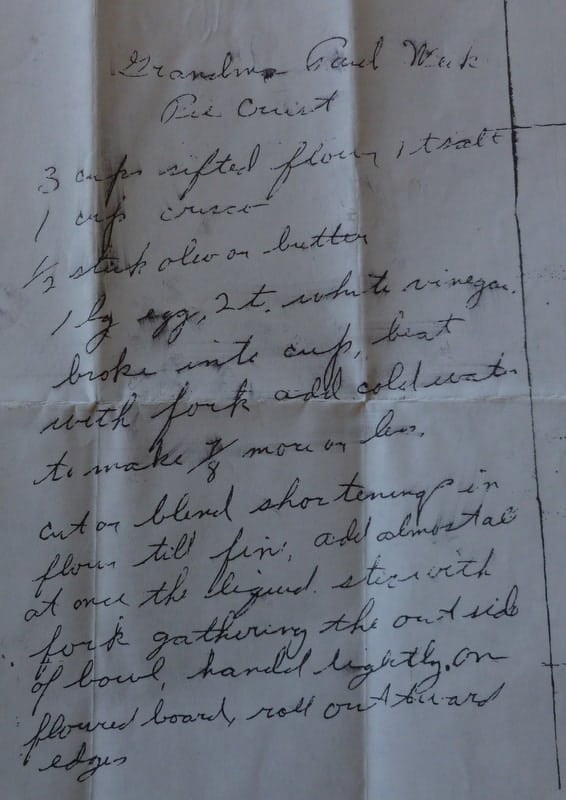 Grandma Paul
Pie Crust
3 cups sifted flour, 1 t salt
1 cup crisco
1/2 stick oleo or butter
1 lg egg, 2 t. white vinegar.
broke into cup, beat
with fork add cold water
to make 7/8 more or less.
cut or blend shortening in
flour till fine, add almost all
at once the liquid. stir with
fork gathering the out side
of bowl, handle lightly. on
floured board, roll out toward
edges